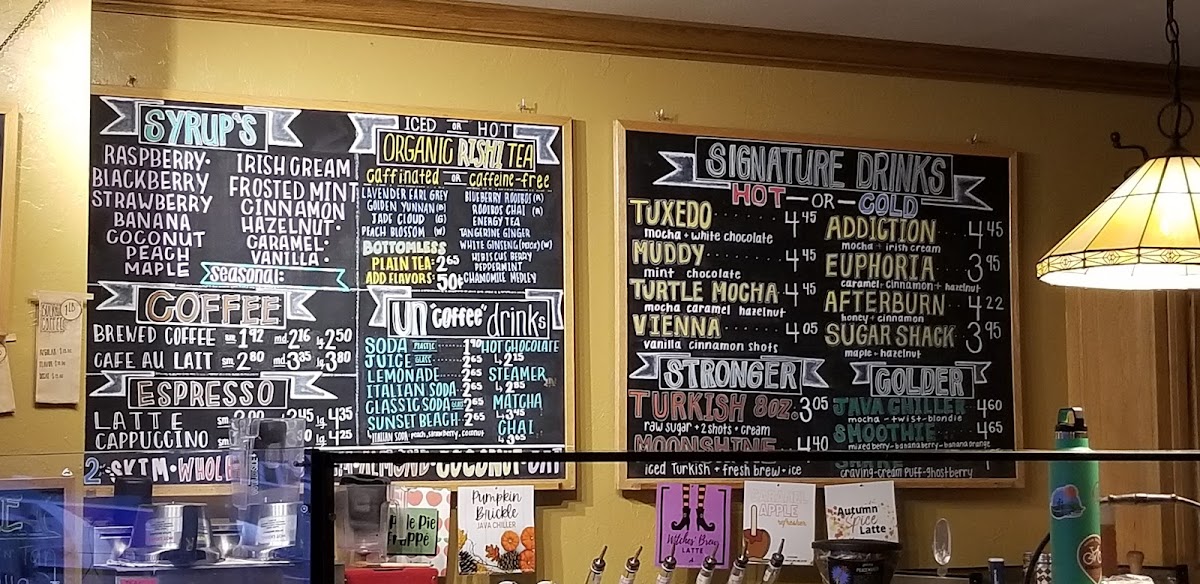 SYRUP'S
RASPBERRY·
BLACKBERRY
STRAWBERRY
BANANA
COCONUT
PEACH
MAPLE
IRISH CREAM
FROSTED MINT
CINNAMON
HAZELNUT·
CARAMEL·
VANILLA·
Seasonal:
COFFEE
BREWED COFFEE sm 1.92 md 2.16 lg 2.50
CAFE AU LAIT sm 2.80 md 3.35 lg 3.80
ESPRESSO
LATTE sm lg 4.35
CAPPUCCINO sm lg 4.25
2· SKIM·WHOLE
ALMOND·COCONUT·OAT
ICED OR HOT
ORGANIC RISHI TEA
caffinated OR caffeine-free
LAVENDER EARL GREY
GOLDEN YUNNAN (B)
JADE CLOUD (G)
PEACH BLOSSOM (G)
BOTTOMLESS
PLAIN TEA· 2.65
ADD FLAVORS· 50¢
BLUEBERRY ROOIBOS (R)
ROOIBOS CHAI (R)
ENERGY TEA
TANGERINE GINGER
WHITE GINSENG (W)
HIBISCUS BERRY
PEPPERMINT
CHAMOMILE MEDLEY
UN "coffee" drinks
SODA PLASTIC 1.90
JUICE GLASS 2.65
LEMONADE 2.65
ITALIAN SODA· 2.65
CLASSIC SODA 2.65
SUNSET BEACH· 2.65
ITALIAN SODA· peach, strawberry, coconut
HOT CHOCOLATE
2.15
STEAMER
2.85
MATCHA
3.45
CHAI
3.65
SIGNATURE DRINKS
HOT—OR—COLD
TUXEDO 4.45
mocha + white chocolate
MUDDY 4.45
mint chocolate
TURTLE MOCHA 4.45
mocha caramel hazelnut
VIENNA 4.05
vanilla cinnamon shots
ADDICTION 4.45
mocha + irish cream
EUPHORIA 3.95
caramel·cinnamon + hazelnut
AFTERBURN 4.22
honey + cinnamon
SUGAR SHACK 3.95
maple + hazelnut
STRONGER
TURKISH 8oz. 3.05
raw sugar + 2 shots + cream
MOONSHINE 4.40
iced Turkish + fresh brew + ice
COLDER
JAVA CHILLER 4.60
mocha + twist + blondie
SMOOTHIE 4.65
mixed berry - banana berry - banana orange
craving-cream puff-ghostberry
Pumpkin
Brickle
JAVA CHILLER
Witches' Brew
LATTE
APPLE
refresher
Autumn
Spice
Latte